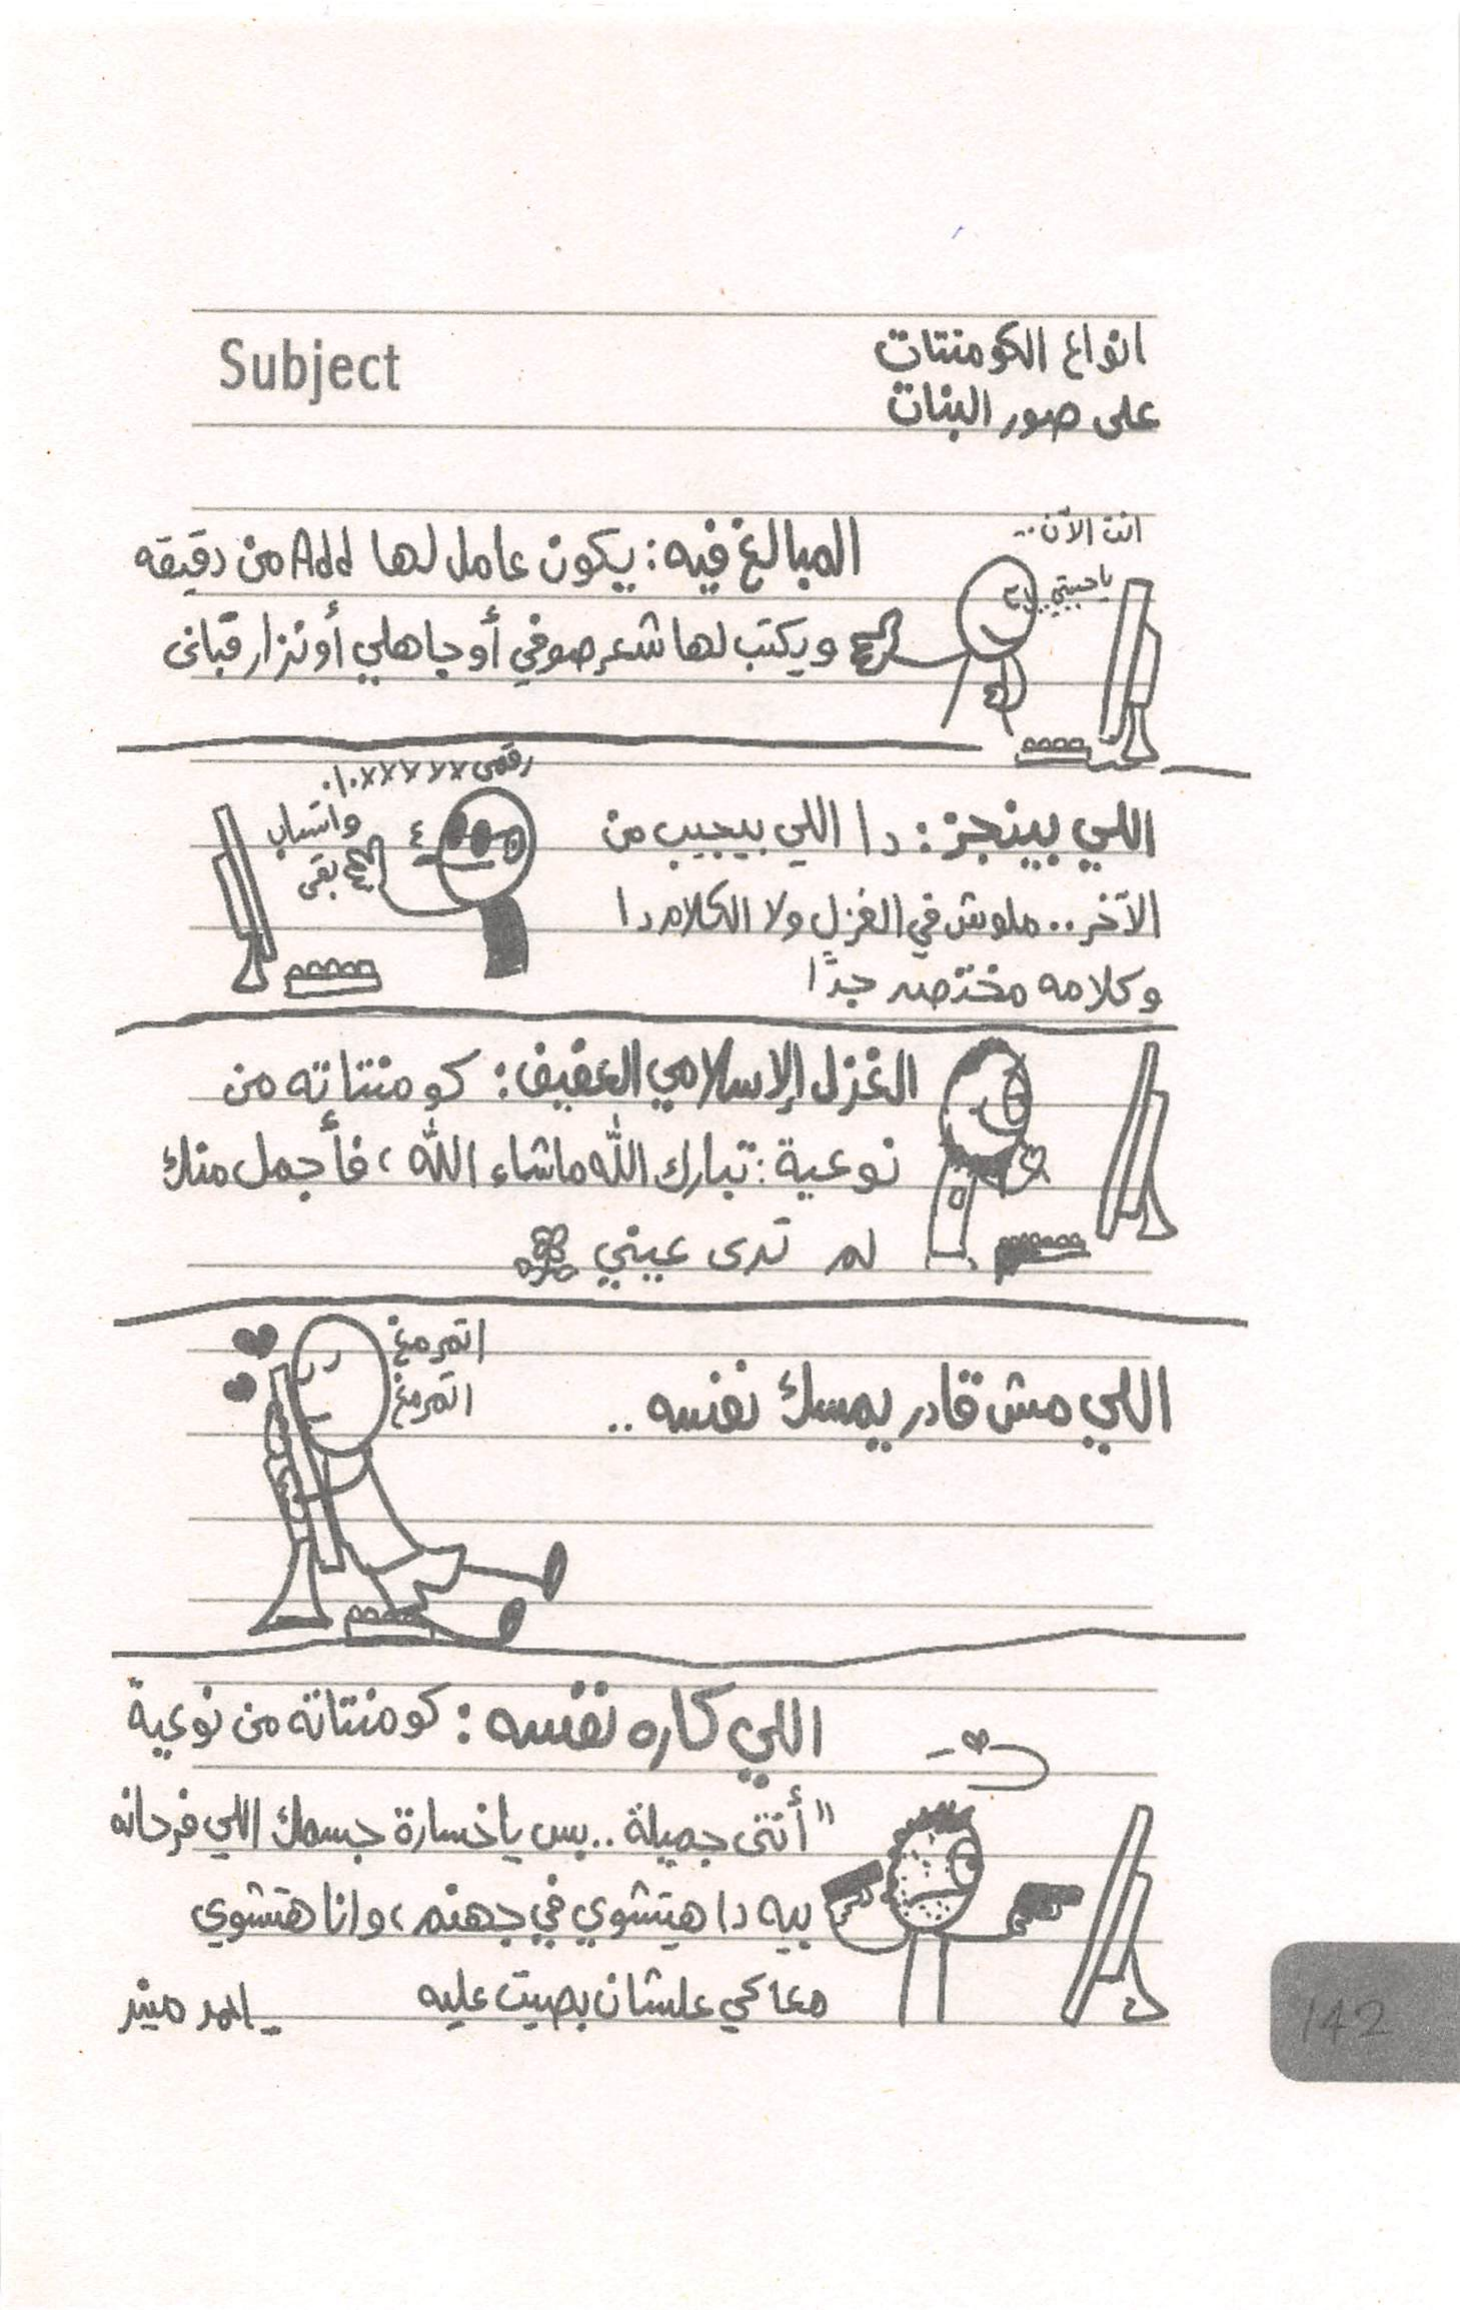 Subject
انواع الكومنتات
على صور البنات
انت الآن..
يا حبيبتي..
المبالغ فيه: يكون عامل لها Add من دقيقه
ويكتب لها شعر صوفي أو جاهلي أو نزار قبانى
رقمى ٠١٠٧٧٧٧٧٧
واتساب
بقى
اللي بينجز: دا اللي بيجيب من
الآخر.. ملوش في الغزل ولا الكلام دا
وكلامه مختصر جدًا
الغزل الإسلامي العفيف: كومنتاته من
نوعية: تبارك الله ماشاء الله، فأجمل منك
لم ترى عيني
اتمرمغ
اتمرمغ
اللي مش قادر يمسك نفسه..
اللي كاره نفسه: كومنتاته من نوعية
"أنتى جميلة.. بس يا خسارة جسمك اللي فرحانه
بيه دا هيتشوي في جهنم، وانا هتشوي
معاكي علشان بصيت عليه
142